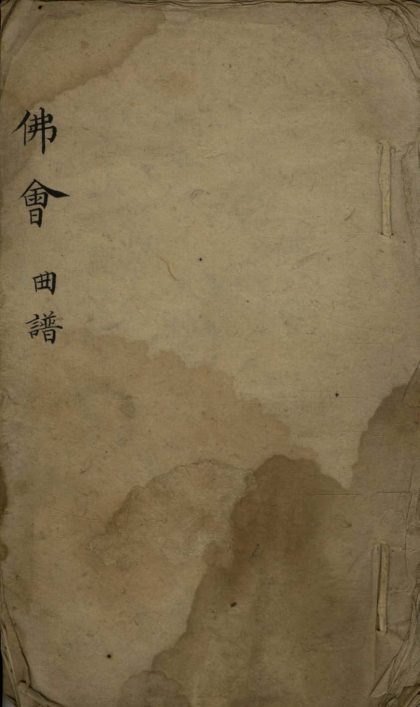 佛會 曲譜